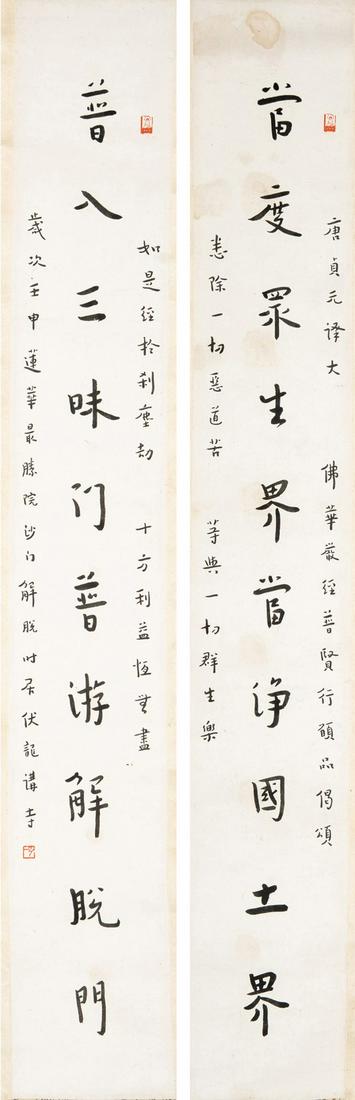 唐貞元译大 佛華嚴經普賢行願品偈頌
當度眾生界當淨國土界
悉除一切惡道苦 等與一切群生樂
如是經於刹塵劫 十方利益恆無盡
普入三昧门普游解脱門
歲次壬申蓮華最勝院沙门解脱时居伏龍講寺